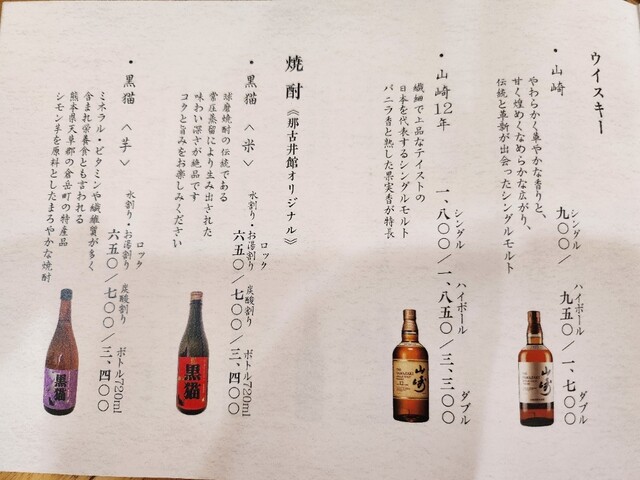 ウイスキー
・山崎
やわらかく華やかな香りと、
甘く煌めくなめらかな広がり、
伝統と革新が出会ったシングルモルト
シングル ハイボール ダブル
九〇〇/九五〇/一、七〇〇
・山崎12年
繊細で上品なテイストの
日本を代表するシングルモルト
バニラ香と熟した果実香が特長
シングル ハイボール ダブル
一、八〇〇/一、八五〇/三、三〇〇
焼酎《那古井館オリジナル》
・黒猫〈米〉
球磨焼酎の伝統である
常圧蒸留により生み出された
味わい深さが絶品です
コクと旨みをお楽しみください
ロック
水割り・お湯割り 炭酸割り ボトル720ml
六五〇/七〇〇/三、四〇〇
・黒猫〈芋〉
ミネラル・ビタミンや繊維質が多く
含まれ栄養食とも言われる
熊本県天草郡の倉岳町の特産品
シモン芋を原料としたまろやかな焼酎
ロック
水割り・お湯割り 炭酸割り ボトル720ml
六五〇/七〇〇/三、四〇〇
山崎
山崎
黒猫
黒猫